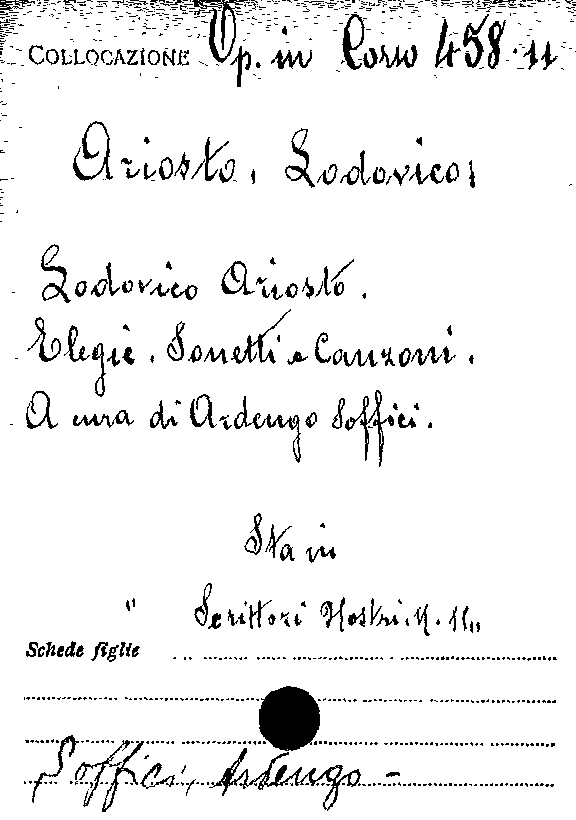 COLLOCAZIONE Op. in Corso 458.11
Ariosto, Lodovico;
Lodovico Ariosto.
Elegie. Sonetti e Canzoni.
A cura di Ardengo Soffici.
Sta in
" Scrittori Nostri. N. 11"
Schede figlie
Soffici, Ardengo -